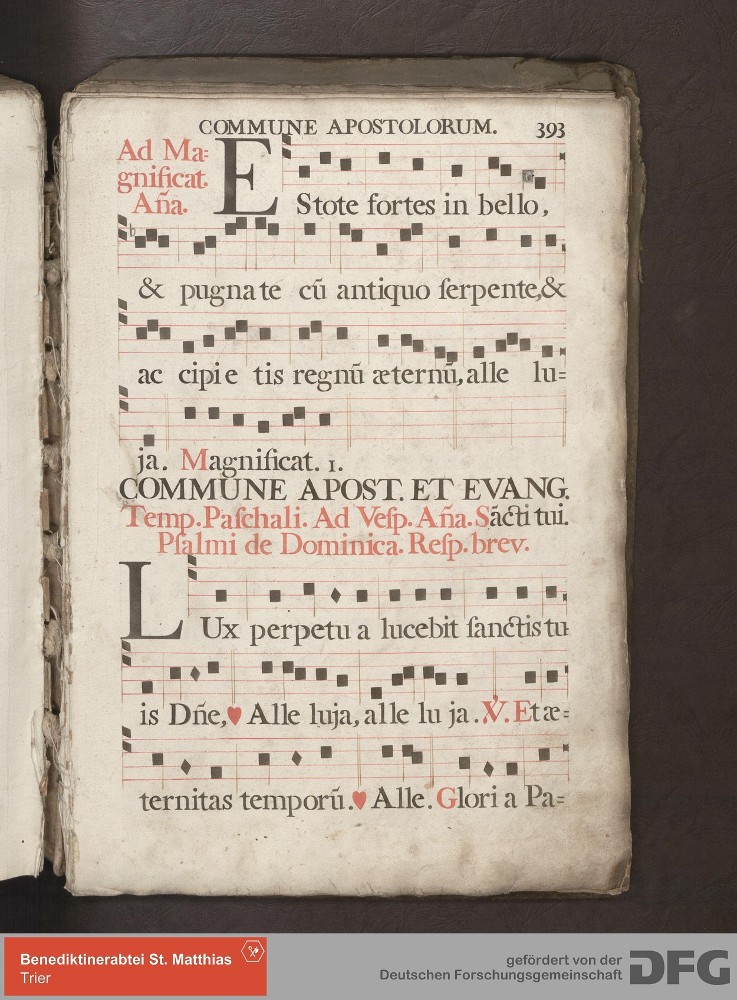 COMMUNE APOSTOLORUM. 393
Ad Ma=
gnificat.
Aña.
EStote fortes in bello,
& pugnate cũ antiquo ſerpente,&
ac cipie tis regnũ æternũ, alle lu=
ja. Magnificat. 1.
COMMUNE APOST. ET EVANG.
Temp. Paſchali. Ad Veſp. Aña. Sãcti tui.
Pſalmi de Dominica. Reſp. brev.
LUx perpetu a lucebit ſanctis tu
is Dñe,♥ Alle luja, alle lu ja. V. Et æ=
ternitas temporũ.♥ Alle. Glori a Pa=
Benediktinerabtei St. Matthias
Trier
gefördert von der
Deutschen Forschungsgemeinschaft
DFG